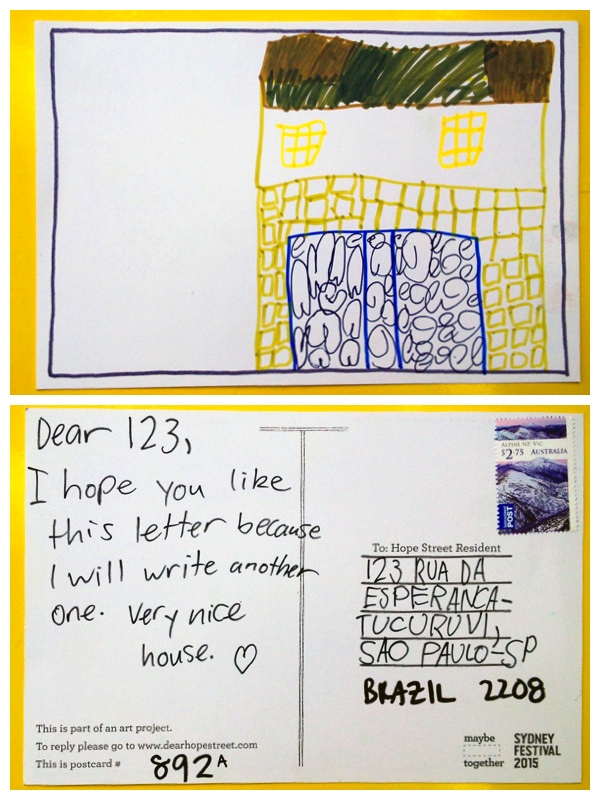 Dear 123,
I hope you like
this letter because
I will write another
one. Very nice
house. ♡
This is part of an art project.
To reply please go to www.dearhopestreet.com
This is postcard # 892A
ALPINE NP. VIC
$2.75 AUSTRALIA
POST
To: Hope Street Resident
123 RUA DA
ESPERANCA-
TUCURUVI,
SAO PAULO-SP
BRAZIL 2208
maybe
together
SYDNEY
FESTIVAL
2015